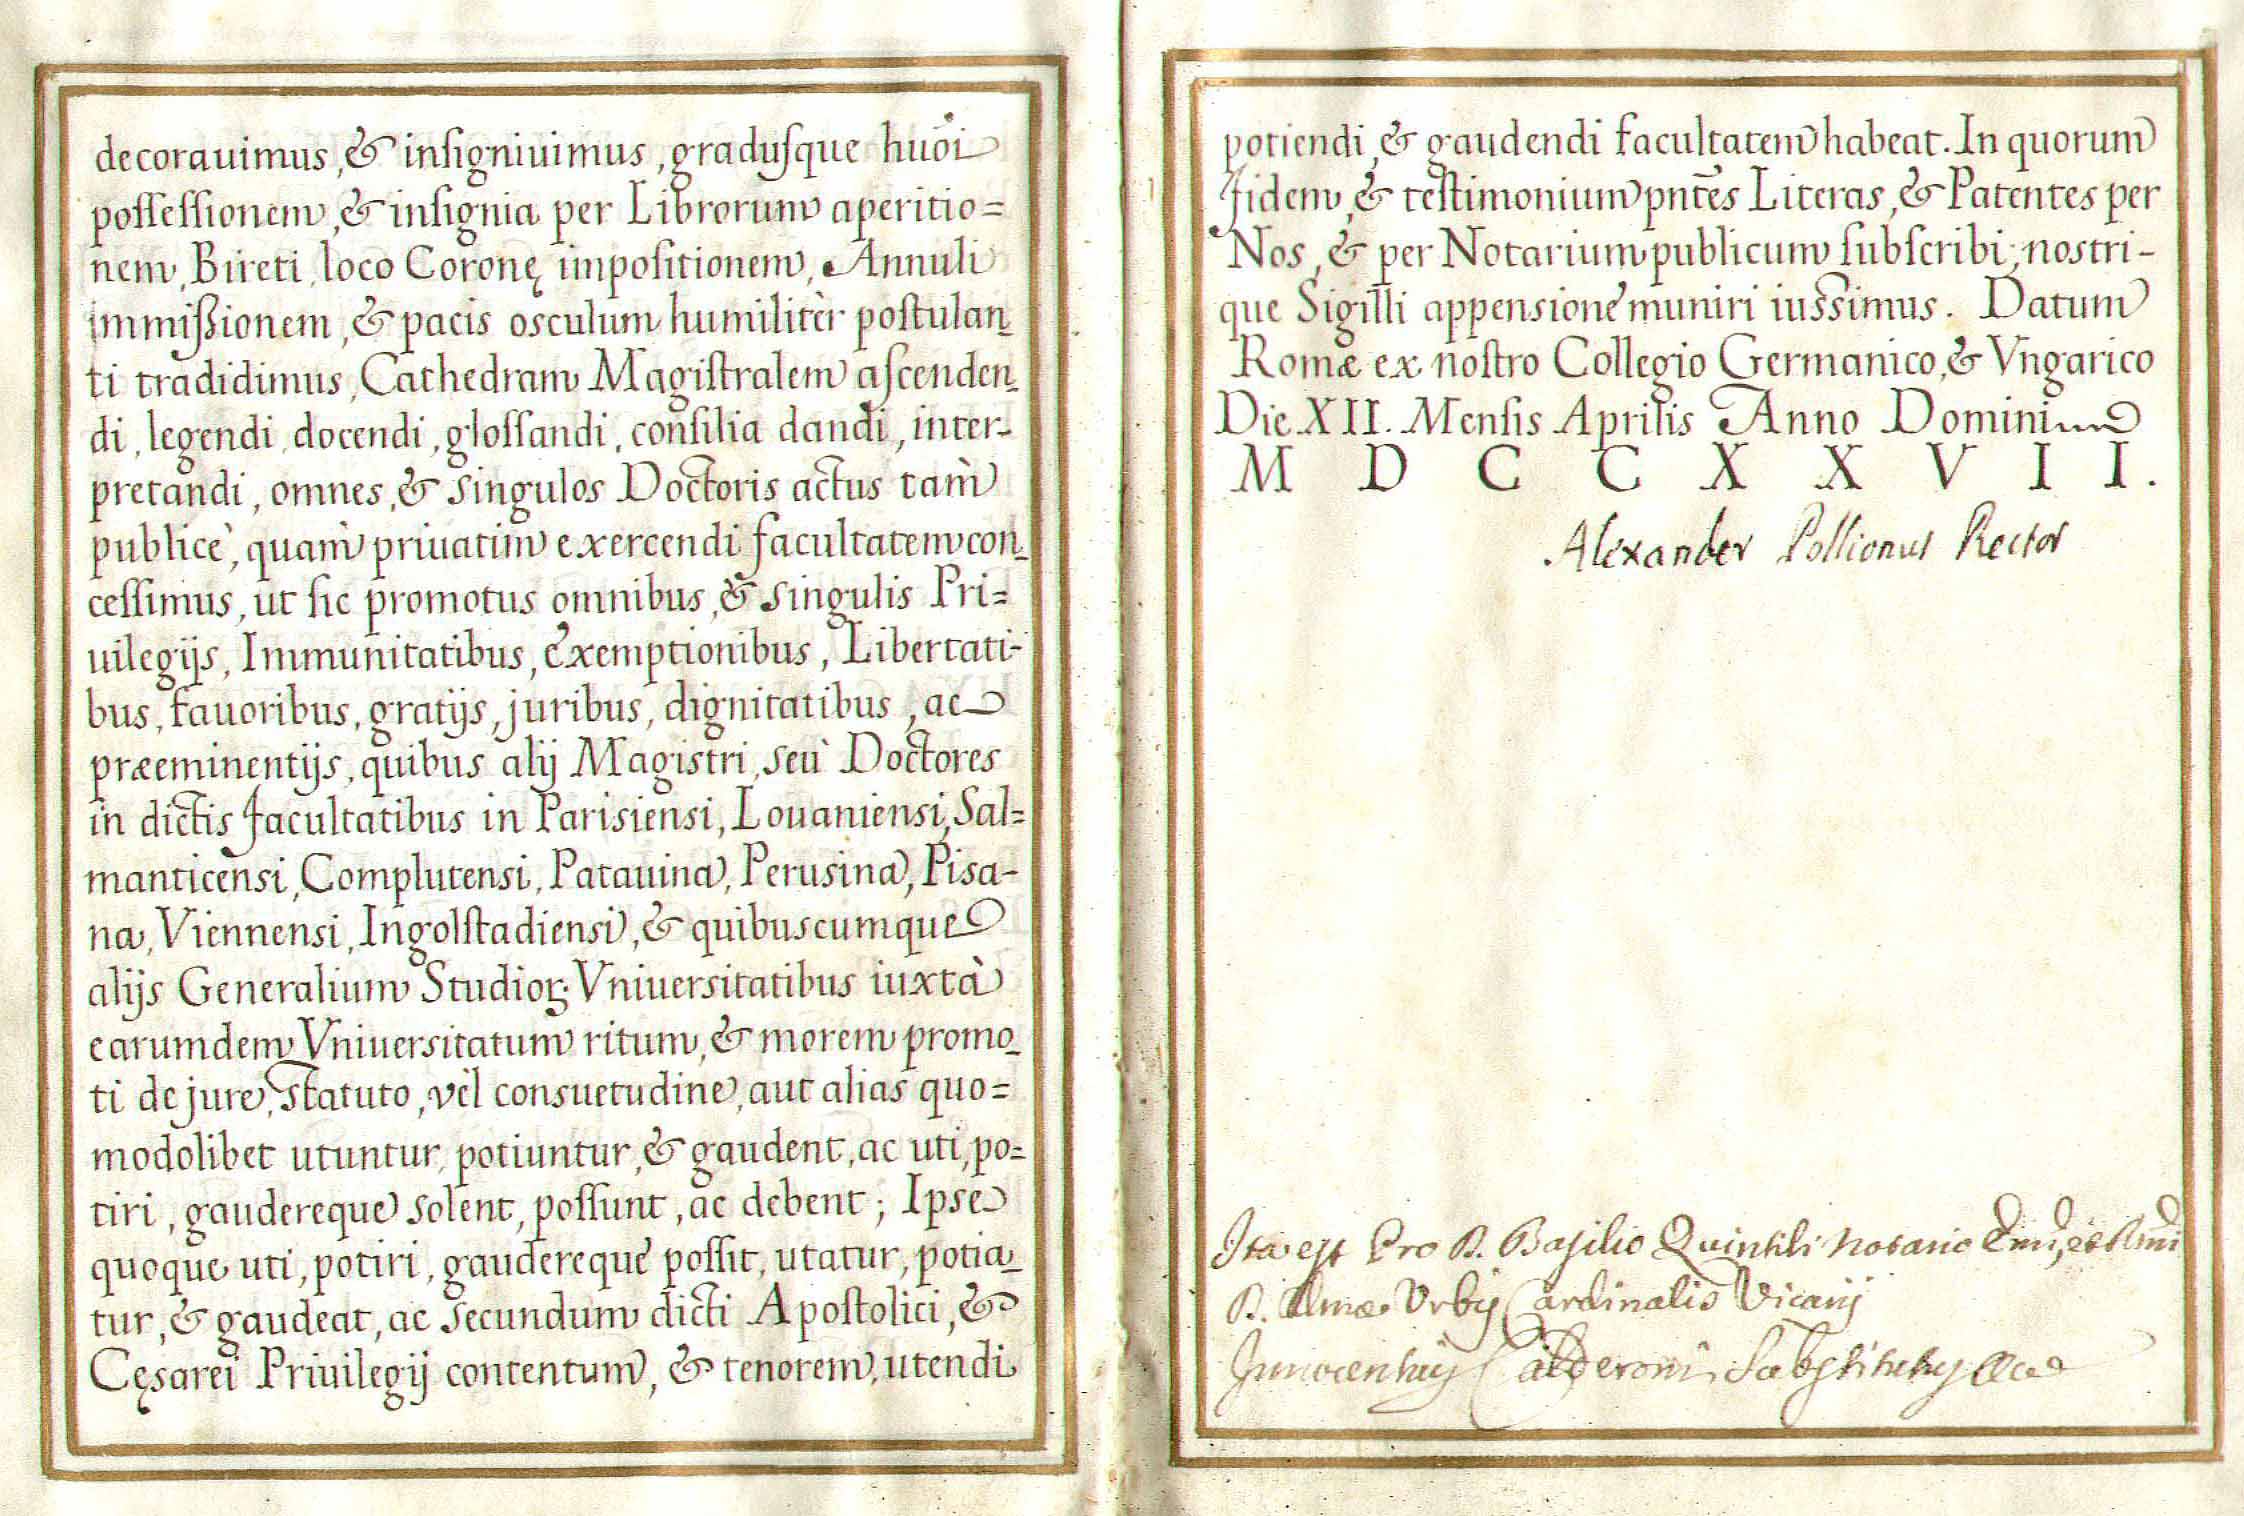 decorauimus, & insigniuimus, gradusque huōi
possessionem, & insignia per Librorum aperitio=
nem, Bireti, loco Coronę impositionem, Annuli
immissionem, & pacis osculum humilitèr postulan_
ti tradidimus, Cathedram Magistralem ascenden_
di, legendi, docendi, glossandi, consilia dandi, inter-
pretandi, omnes, & singulos Doctoris actus tàm
publicè, quàm priuatim exercendi facultatem con_
cessimus, ut sic promotus omnibus, & singulis Pri=
uilegijs, Immunitatibus, exemptionibus, Libertati-
bus, fauoribus, gratijs, juribus, dignitatibus, ac
præeminentijs, quibus alij Magistri, seù Doctores
in dictis facultatibus in Parisiensi, Louaniensi, Sal=
manticensi, Complutensi, Patauina, Perusina, Pisa-
na, Viennensi, Ingolstadiensi, & quibuscumque
alijs Generalium Studioꝝ Vniuersitatibus iuxtà
earumdem Vniuersitatum ritum, & morem promo_
ti de jure, statuto, vèl consuetudine, aut alias quo=
modolibet utuntur, potiuntur, & gaudent, ac uti, po=
tiri, gaudereque solent, possunt, ac debent; Ipse
quoque uti, potiri, gaudereque possit, utatur, potia_
tur, & gaudeat, ac secundum dicti Apostolici, &
Cęsarei Priuilegij contentum, & tenorem, utendi
potiendi, & gaudendi facultatem habeat. In quorum
fidem, & testimonium pñtes Literas, & Patentes per
Nos, & per Notarium publicum subscribi, nostri-
que Sigilli appensione muniri iussimus. Datum
Romæ ex nostro Collegio Germanico, & Vngarico
Die XII. Mensis Aprilis Anno Domini
M D C C X X V I I.
Alexander Pollionus Rector
Ita est Pro D. Basilio Quintili Notario Emi, et Rmi
D. Almæ Urbis Cardinalis Vicarij
Innocentius Calderoni Substitutus